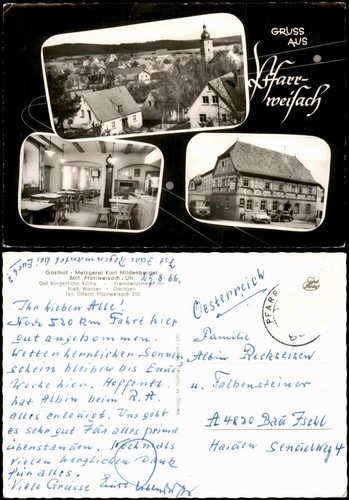 GRUSS
AUS
Pfarr-
weisach
Gasthof - Metzgerei Karl Mildenberger
8601 Pfarrweisach - Ufr.
Gut bürgerliche Küche Fremdenzimmer mit
fließ. Wasser - Garagen
Tel. Öffentl. Pfarrweisach 210
25.8.66.
Ihr lieben Alle!
Nach 520 km Fahrt hier
gut angekommen.
Wetter herrlicher Sonnen
schein bleiben bis Ende
Woche hier. Hoffentl.
hat Albin beim R.A.
alles erledigt. Uns geht
es sehr gut für alles prima
überstanden. Nochmals
vielen herzlichen Dank
für alles.
Viele Grüsse
Oesterreich
PFARR
Familie
Albin
u. Falkensteiner
A 4820 Bad Ischl
Haiden 4